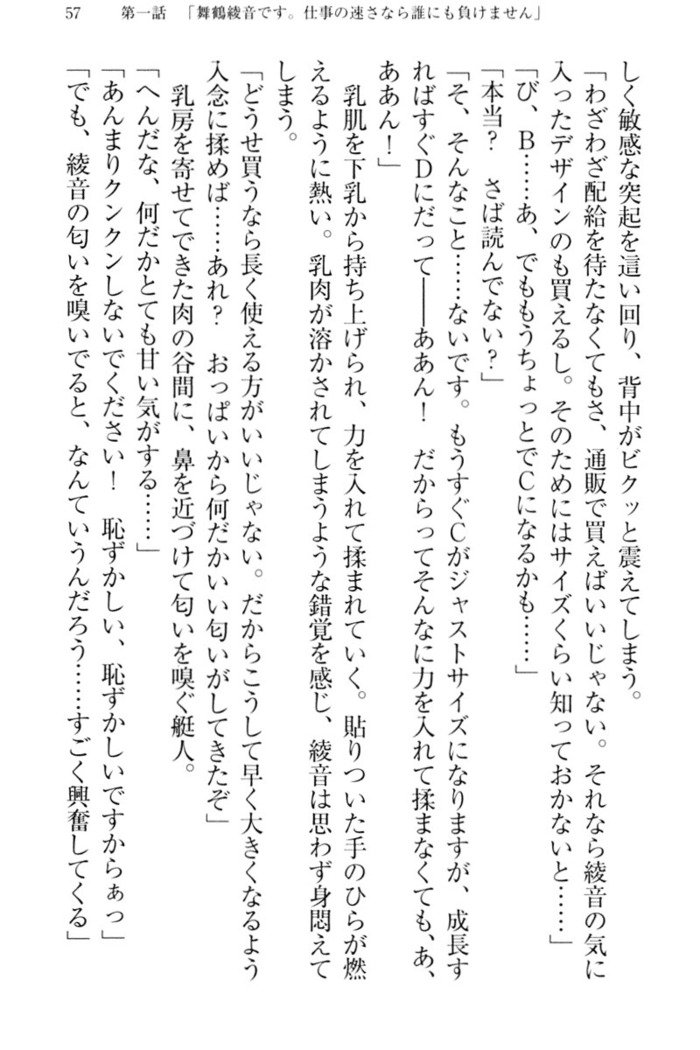 57　第一話　「舞鶴綾音です。仕事の速さなら誰にも負けません」
しく敏感な突起を這い回り、背中がビクッと震えてしまう。
「わざわざ配給を待たなくてもさ、通販で買えばいいじゃない。それなら綾音の気に
入ったデザインのも買えるし。そのためにはサイズくらい知っておかないと……」
「び、B……あ、でももうちょっとでCになるかも……」
「本当？　さば読んでない？」
「そ、そんなこと……ないです。もうすぐCがジャストサイズになりますが、成長す
ればすぐDにだって――ああん！　だからってそんなに力を入れて揉まなくても、あ、
ああん！」
　乳肌を下乳から持ち上げられ、力を入れて揉まれていく。貼りついた手のひらが燃
えるように熱い。乳肉が溶かされてしまうような錯覚を感じ、綾音は思わず身悶えて
しまう。
「どうせ買うなら長く使える方がいいじゃない。だからこうして早く大きくなるよう
入念に揉めば……あれ？　おっぱいから何だかいい匂いがしてきたぞ」
　乳房を寄せてできた肉の谷間に、鼻を近づけて匂いを嗅ぐ艇人。
「へんだな、何だかとても甘い気がする……」
「あんまりクンクンしないでください！　恥ずかしい、恥ずかしいですからぁっ」
「でも、綾音の匂いを嗅いでると、なんていうんだろう……すごく興奮してくる」